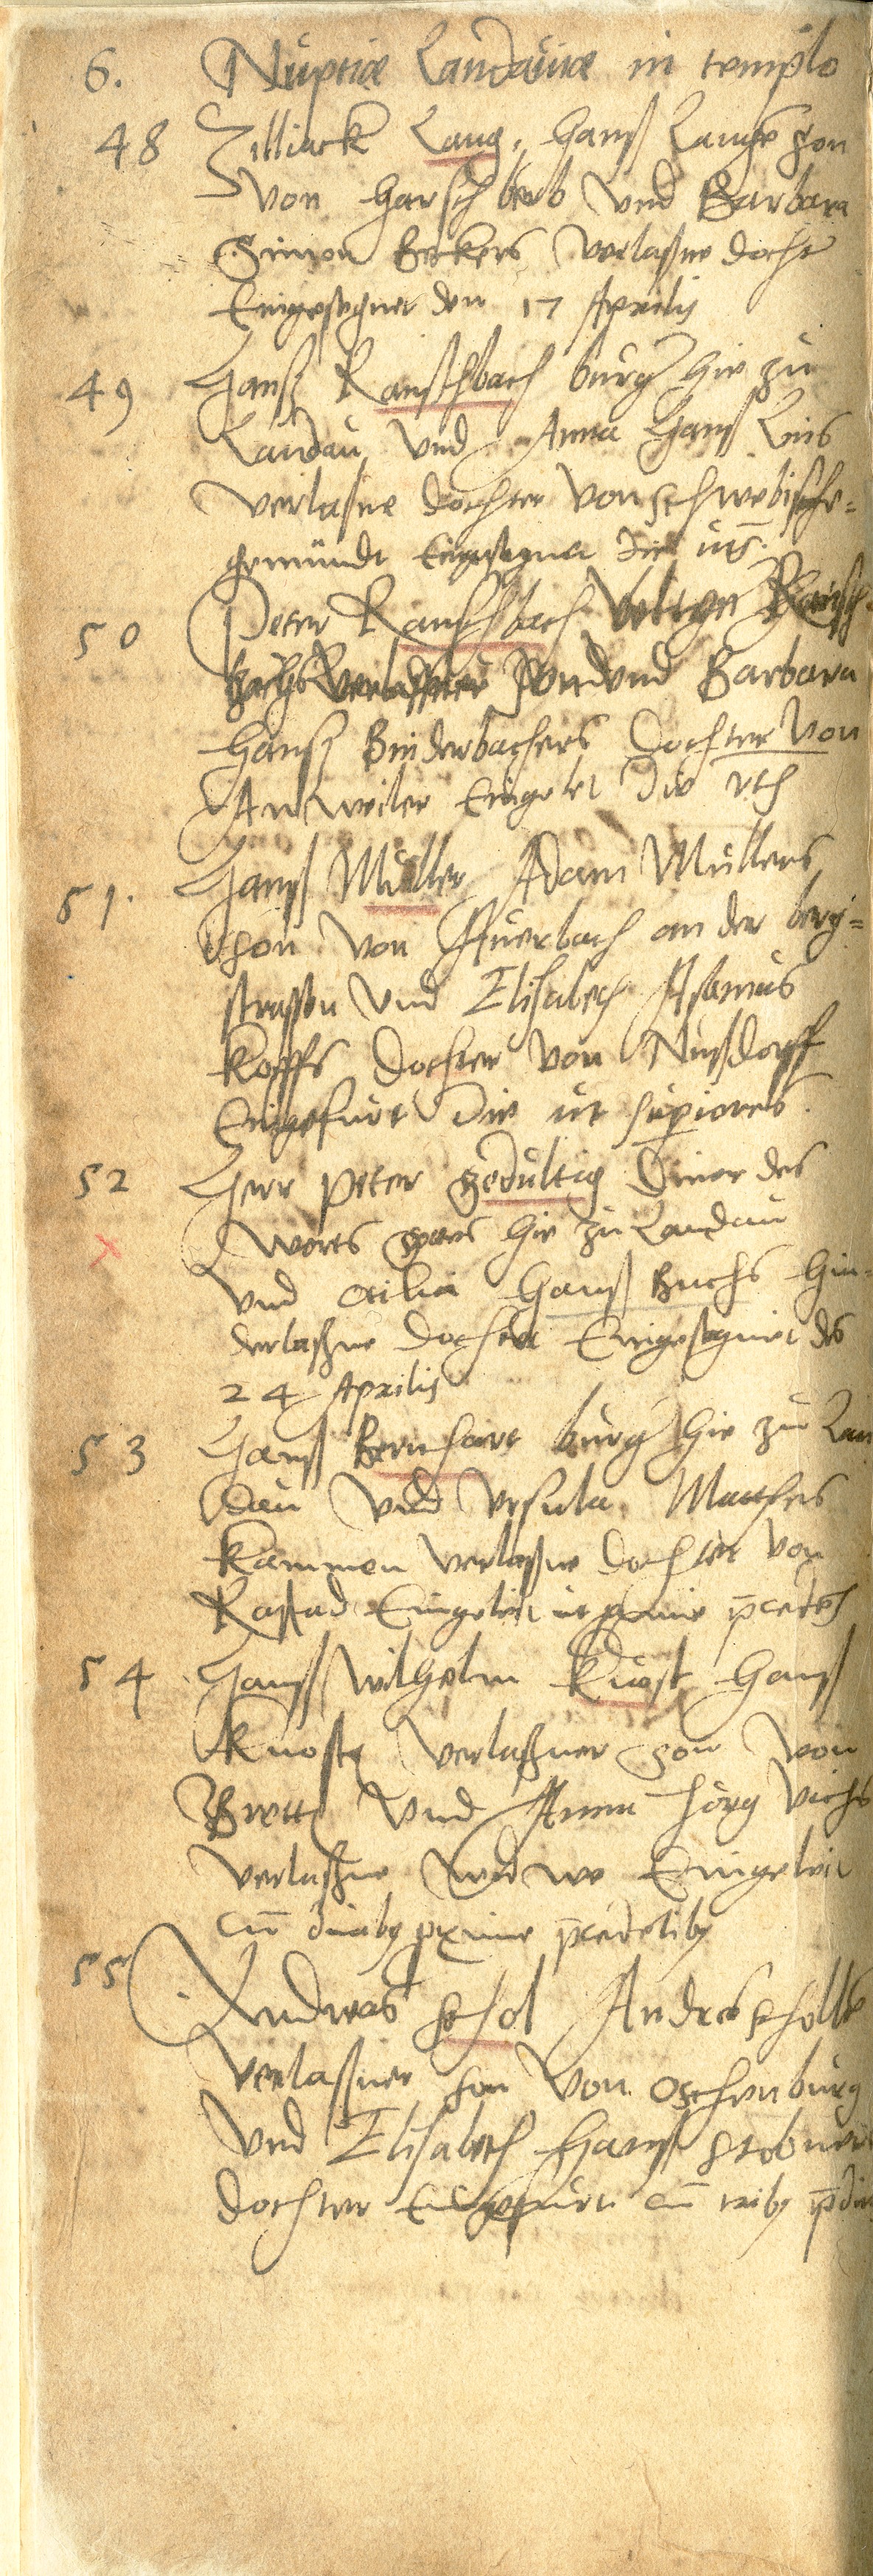 6. Nuptiæ Landavicæ in templo
48 Zilliack Lang, Hanß Langen son
von Harschberb und Barbara
Simon Beckers verlaßne docht
Eingesegnet den 17 Aprilis
49 Hanß Ranschbach burg hie zu
Landau und Anna Hanß
verlaßne dochter von schwebische=
gemündt Eingesegnet die
50 Peter Ranschbach Veltgen Ransch
bachs verlaßner son und Barbara
Hanß Binderbachers dochter von
Anweiler Eingelei die
51. Hanß Müller, Adam Müllers
son von Auerbach an der berg=
strassen und Elisabeth Asamus
Kopffs dochter von Nußdorff
Eingefürt die ut superiores.
52 Herr peter gedultig diner des
worts gotes hie zu Landau
und Otilia Hanß Buchs hin=
derlaßne dochter Eingesegnet des
24 Aprilis
53 Hanß Bernhart burg hie zu Lan
dau und Ursula Matthes
Kammen verlaßne dochter von
Rastad Eingeleit ut
54 Hanß Wilhelm Knost Hanß
Knosts verlaßner son von
Brett und Anna Jörg
verlaßne widwe Eingeleit
cū duaby pxime
55 Andreas schol Andres scholls
verlaßner son von oschenburg
und Elisabeth Hanß
dochter Eingefürt cū triby